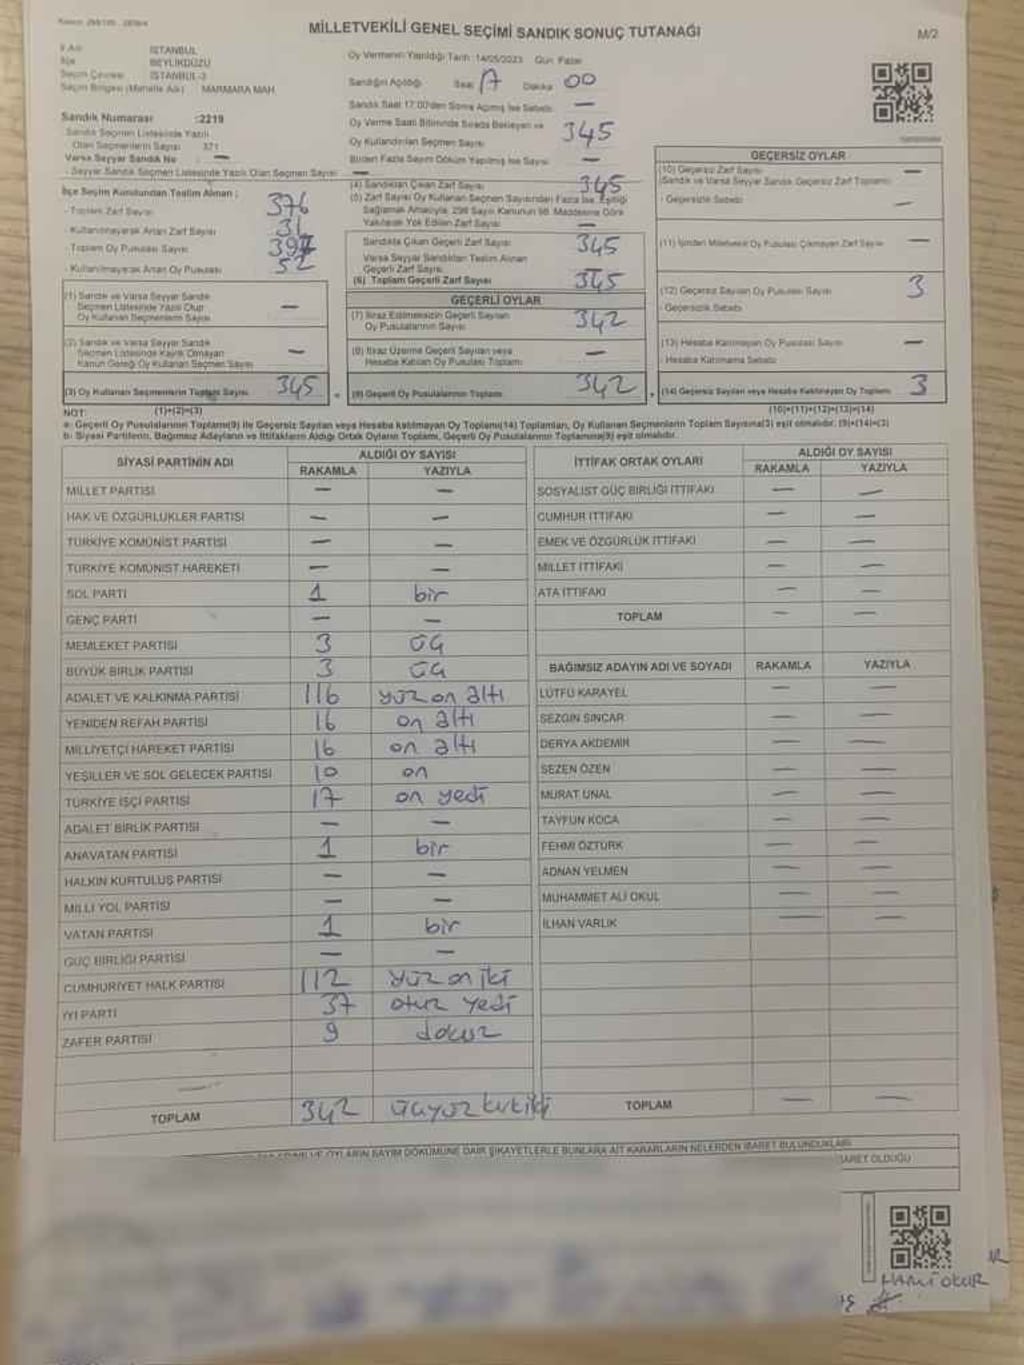 MİLLETVEKİLİ GENEL SEÇİMİ SANDIK SONUÇ TUTANAĞI
M/2
İl Adı İSTANBUL
İlçe BEYLİKDÜZÜ
Seçim Çevresi İSTANBUL-3
Seçim Bölgesi (Mahalle Adı) MARMARA MAH.
Oy Vermenin Yapıldığı Tarih: 14/05/2023 Gün: Pazar
Sandığın Açılışı Saat 17 Dakika 00
Sandık Saat 17:00'den Sonra Açılmış İse Sebebi —
Oy Verme Saati Bitiminde Sırada Bekleyen ve
Oy Kullandırılan Seçmen Sayısı 345
Birden Fazla Sayım Döküm Yapılmış İse Sayısı —
Sandık Numarası :2219
Sandık Seçmen Listesinde Yazılı
Olan Seçmenlerin Sayısı 371
Varsa Seyyar Sandık No : —
- Seyyar Sandık Seçmen Listesinde Yazılı Olan Seçmen Sayısı —
İlçe Seçim Kurulundan Teslim Alınan :
- Toplam Zarf Sayısı 376
- Kullanılmayarak Artan Zarf Sayısı 31
- Toplam Oy Pusulası Sayısı 397
- Kullanılmayarak Artan Oy Pusulası 52
(1) Sandık ve Varsa Seyyar Sandık
Seçmen Listesinde Yazılı Olup
Oy Kullanan Seçmenlerin Sayısı —
(2) Sandık ve Varsa Seyyar Sandık
Seçmen Listesinde Kayıtlı Olmayan
Kanun Gereği Oy Kullanan Seçmen Sayısı —
(3) Oy Kullanan Seçmenlerin Toplam Sayısı 345
(1)+(2)=(3)
(4) Sandıktan Çıkan Zarf Sayısı 345
(5) Zarf Sayısı Oy Kullanan Seçmen Sayısından Fazla İse, Eşitliği
Sağlamak Amacıyla, 298 Sayılı Kanunun 98. Maddesine Göre
Yakılarak Yok Edilen Zarf Sayısı —
Sandıkta Çıkan Geçerli Zarf Sayısı 345
Varsa Seyyar Sandıktan Teslim Alınan
Geçerli Zarf Sayısı
(6) Toplam Geçerli Zarf Sayısı 345
GEÇERLİ OYLAR
(7) İtiraz Edilmeksizin Geçerli Sayılan
Oy Pusulalarının Sayısı 342
(8) İtiraz Üzerine Geçerli Sayılan veya
Hesaba Katılan Oy Pusulası Toplamı —
(9) Geçerli Oy Pusulalarının Toplamı 342
GEÇERSİZ OYLAR
(10) Geçersiz Zarf Sayısı
(Sandık ve Varsa Seyyar Sandık Geçersiz Zarf Toplamı) —
- Geçersizlik Sebebi —
(11) İçinden Milletvekili Oy Pusulası Çıkmayan Zarf Sayısı —
(12) Geçersiz Sayılan Oy Pusulası Sayısı 3
- Geçersizlik Sebebi
(13) Hesaba Katılmayan Oy Pusulası Sayısı —
- Hesaba Katılmama Sebebi
(14) Geçersiz Sayılan veya Hesaba Katılmayan Oy Toplamı 3
(10)+(11)+(12)+(13)=(14)
NOT:
a- Geçerli Oy Pusulalarının Toplamı(9) ile Geçersiz Sayılan veya Hesaba katılmayan Oy Toplamı(14) Toplamları, Oy Kullanan Seçmenlerin Toplam Sayısına(3) eşit olmalıdır. (9)+(14)=(3)
b- Siyasi Partilerin, Bağımsız Adayların ve İttifakların Aldığı Ortak Oyların Toplamı, Geçerli Oy Pusulalarının Toplamına(9) eşit olmalıdır.
SİYASİ PARTİNİN ADI ALDIĞI OY SAYISI
RAKAMLA YAZIYLA
MİLLET PARTİSİ — —
HAK VE ÖZGÜRLÜKLER PARTİSİ — —
TÜRKİYE KOMÜNİST PARTİSİ — —
TÜRKİYE KOMÜNİST HAREKETİ — —
SOL PARTİ 1 bir
GENÇ PARTİ — —
MEMLEKET PARTİSİ 3 üç
BÜYÜK BİRLİK PARTİSİ 3 üç
ADALET VE KALKINMA PARTİSİ 116 yüz on altı
YENİDEN REFAH PARTİSİ 16 on altı
MİLLİYETÇİ HAREKET PARTİSİ 16 on altı
YEŞİLLER VE SOL GELECEK PARTİSİ 10 on
TÜRKİYE İŞÇİ PARTİSİ 17 on yedi
ADALET BİRLİK PARTİSİ — —
ANAVATAN PARTİSİ 1 bir
HALKIN KURTULUŞ PARTİSİ — —
MİLLİ YOL PARTİSİ — —
VATAN PARTİSİ 1 bir
GÜÇ BİRLİĞİ PARTİSİ — —
CUMHURİYET HALK PARTİSİ 112 yüz on iki
İYİ PARTİ 37 otuz yedi
ZAFER PARTİSİ 9 dokuz
TOPLAM 342 üçyüz kırkiki
İTTİFAK ORTAK OYLARI ALDIĞI OY SAYISI
RAKAMLA YAZIYLA
SOSYALİST GÜÇ BİRLİĞİ İTTİFAKI — —
CUMHUR İTTİFAKI — —
EMEK VE ÖZGÜRLÜK İTTİFAKI — —
MİLLET İTTİFAKI — —
ATA İTTİFAKI — —
TOPLAM — —
BAĞIMSIZ ADAYIN ADI VE SOYADI RAKAMLA YAZIYLA
LÜTFÜ KARAYEL — —
SEZGİN SINCAR — —
DERYA AKDEMİR — —
SEZEN ÖZEN — —
MURAT ÜNAL — —
TAYFUN KOCA — —
FEHMİ ÖZTÜRK — —
ADNAN YELMEN — —
MUHAMMET ALİ OKUL — —
İLHAN VARLIK — —
TOPLAM — —
VE OYLARIN SAYIM DÖKÜMÜNE DAİR ŞİKAYETLERLE BUNLARA AİT KARARLARIN NELERDEN İBARET BULUNDUKLARI
İBARET OLDUĞU
HAMİ OKUR